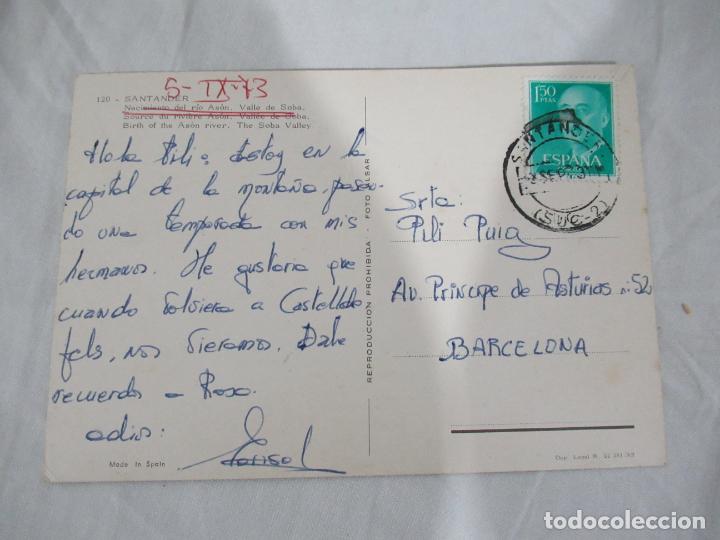 5-IX-73
120 - SANTANDER
Nacimiento del río Asón. Valle de Soba.
Source du rivière Asón. Vallée de Soba.
Birth of the Asón river. The Soba Valley
Hola Pili: Estoy en la
capital de la montaña pasan-
do una temporada con mis
hermanos. Me gustaria que
cuando volviera a Castellde
fels, nos vieramos. Dale
recuerdos a Rosa.
adios:
Marisol
Made in Spain
REPRODUCCION PROHIBIDA - FOTO
1'50
PTAS
ESPAÑA
SANTANDER
(SUC-2)
Srta:
Pili Puig
Av. Principe de Asturias nº 52
BARCELONA
Dep. Legal B.
todocoleccion
todocoleccion.net